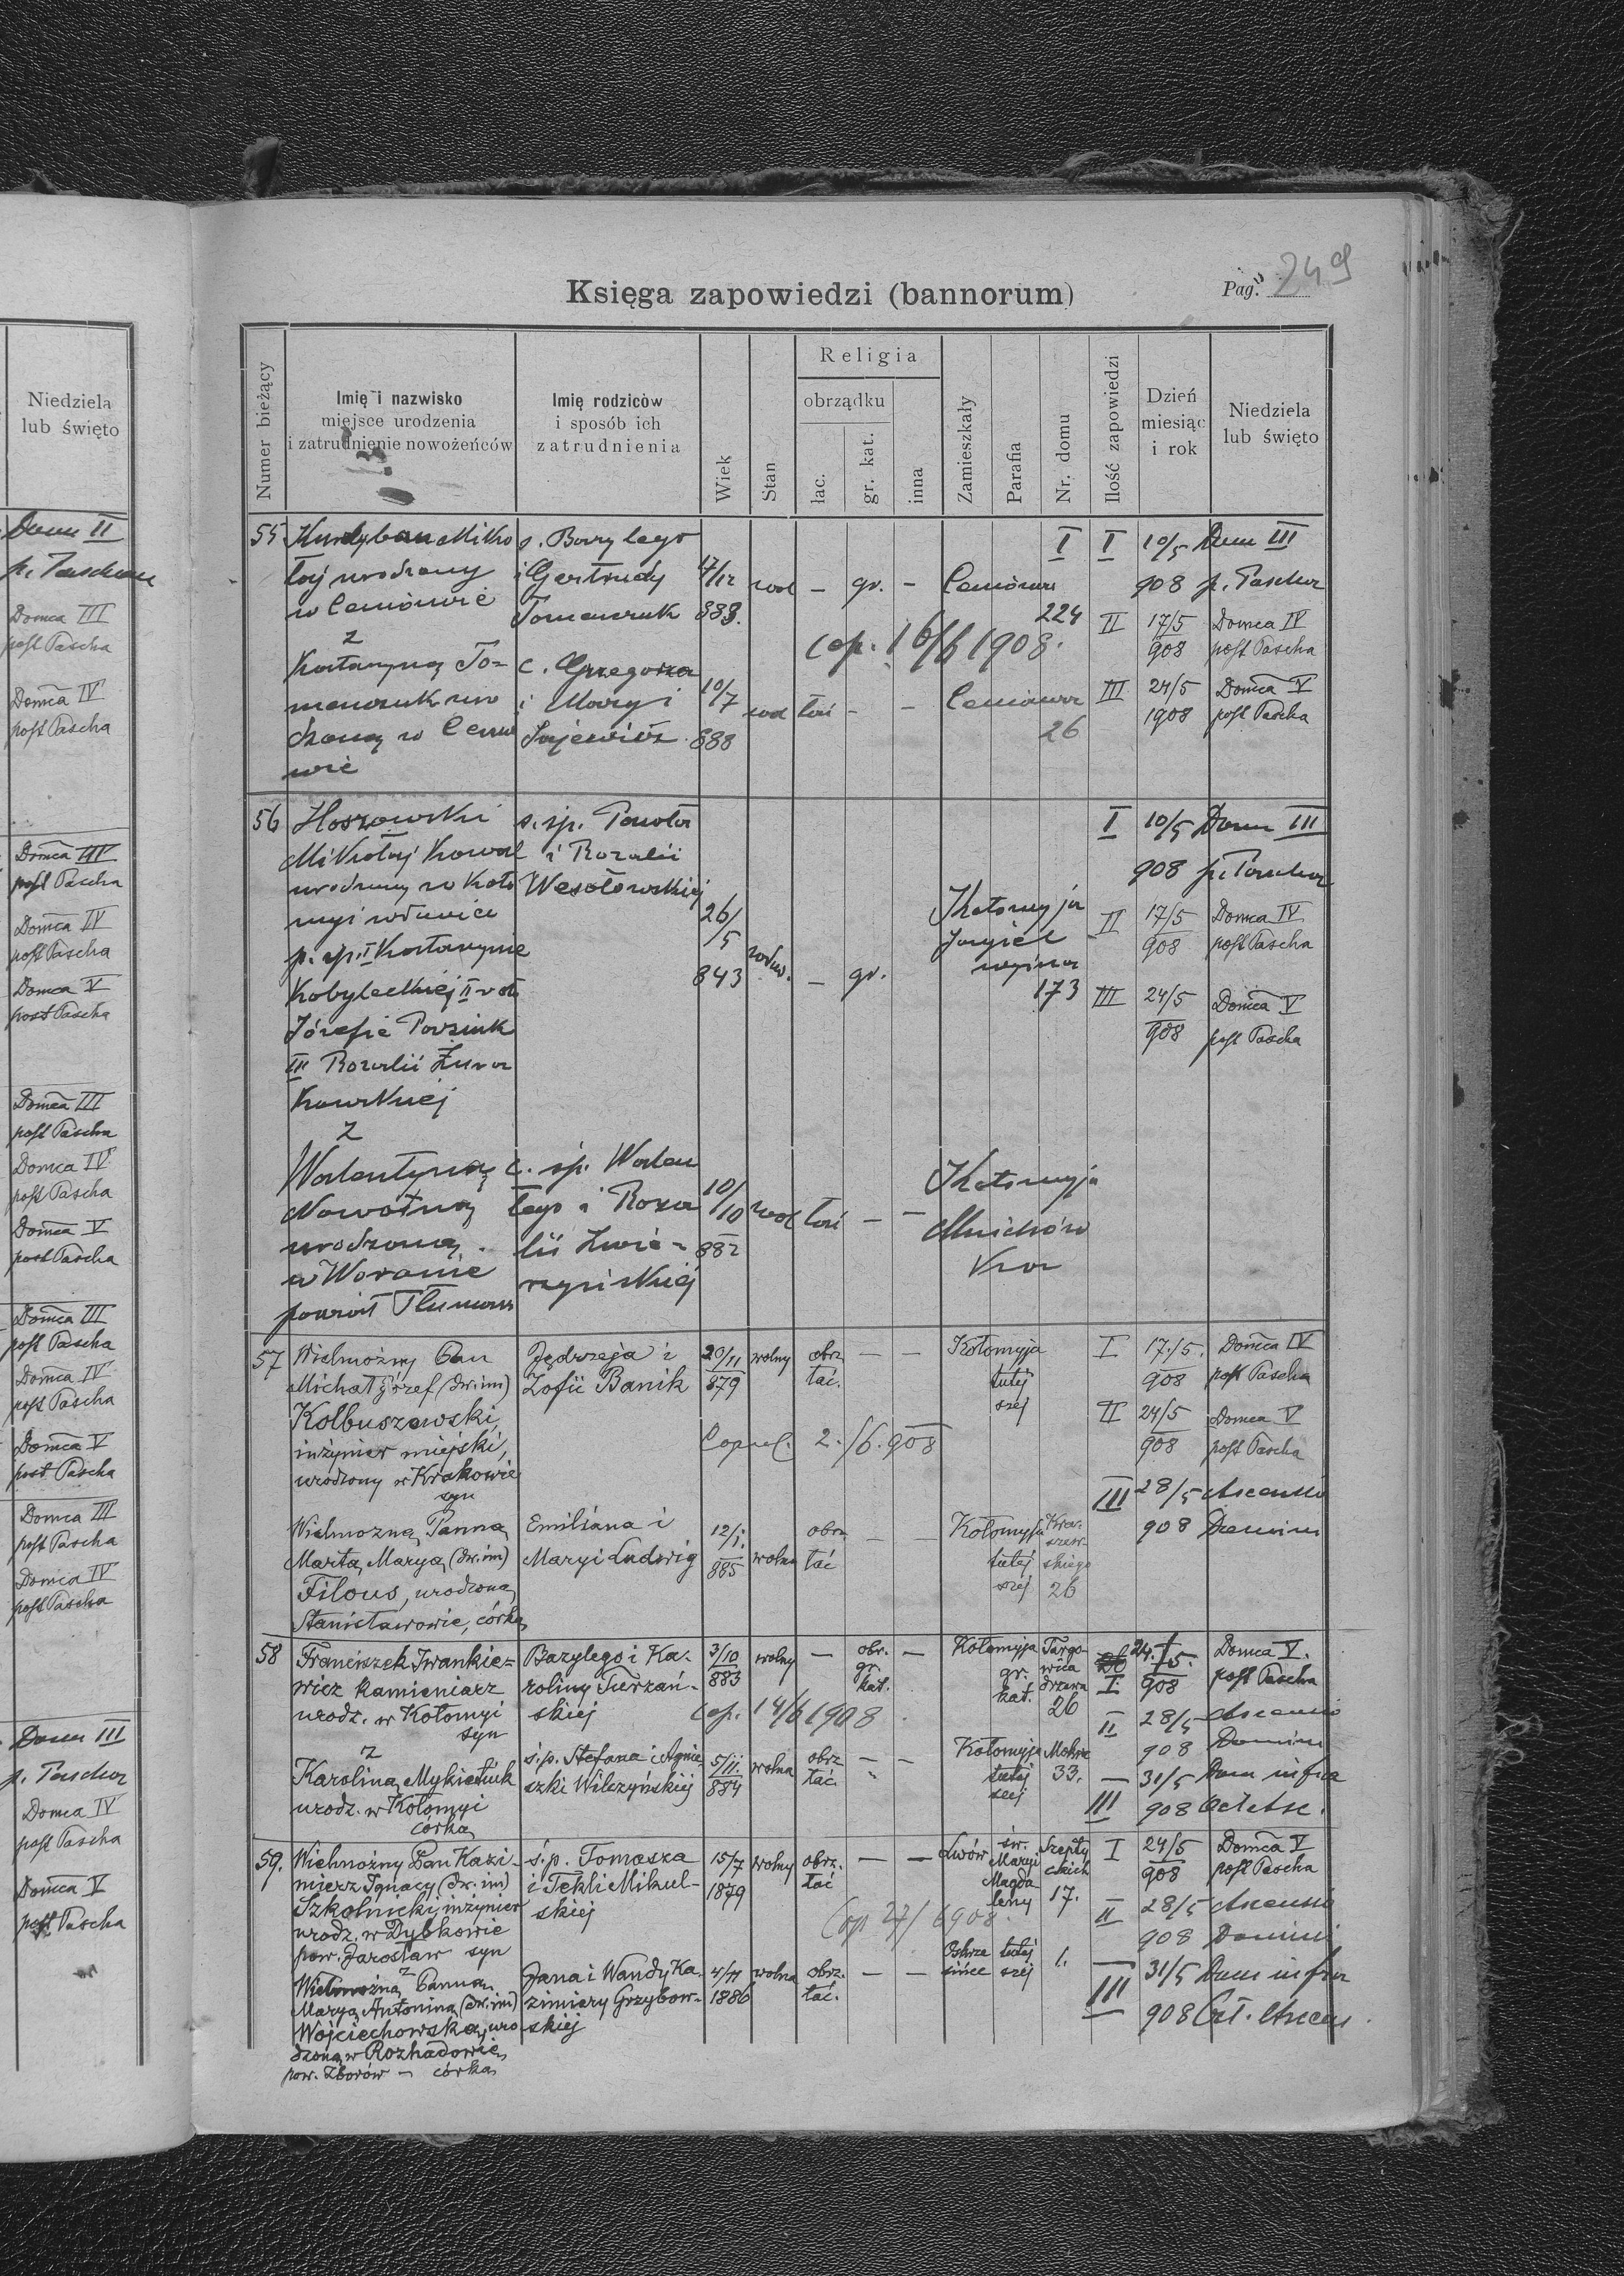 Niedziela
lub święto
Dom II
p. Pascham
Domca III
post Pascha
Domca IV
post Pascha
Domca III
post Pascha
Domca IV
post Pascha
Domca V
post Pascha
Domca III
post Pascha
Domca IV
post Pascha
Domca V
post Pascha
Domca III
post Pascha
Domca IV
post Pascha
Domca V
post Pascha
Domca III
post Pascha
Domca IV
post Pascha
Dom III
p. Pascha
Domca IV
post Pascha
Domca V
post Pascha
Księga zapowiedzi (bannorum)
Pag. 249
Numer bieżący
Imię i nazwisko
miejsce urodzenia
i zatrudnienie nowożeńców
Imię rodziców
i sposób ich
zatrudnienia
Wiek
Stan
Religia
obrządku
łac.
gr. kat.
inna
Zamieszkały
Parafia
Nr. domu
Ilość zapowiedzi
Dzień
miesiąc
i rok
Niedziela
lub święto
55 Kurdyban Miko
łaj urodzony
w Ceniowie
z
Katarzyną To-
menczuk uro
dzoną w Cenio
wie
s. Bazylego
i Gertrudy
Tomenczuk
17/12
883.
wol — gr. — Ceniowa
224
cop. 16/6 1908.
c. Grzegorza
i Maryi
Jajewicz
10/7
888
wol łaci — — Ceniowa
26
I I 10/5 Dom III
908 p. Pascha
II 17/5 Domca IV
908 post Pascha
III 24/5 Domca V
1908 post Pascha
56 Hoszowski
Mikołaj Kowal
urodzony w Koło
myi wdowiec
p. śp. I Katarzynie
Kobyleckiej II vot
Józefie Porsiuk
III Rozalii Żura
kowskiej
z
Walentyną
Nowotną
urodzoną
w Woronie
powiat Tłumacz
s. śp. Pawła
i Rozalii
Wesołowskiej
26/5
843
wdow. — gr.
Kołomyja
Jagiel
173
c. śp. Walen
tego i Roza
lii Zwie-
rzyńskiej
10/10
882
wol łaci — —
Kołomyja
Mnichów
ka
I 10/5 Dom III
908 p. Pascha
II 17/5 Domca IV
908 post Pascha
III 24/5 Domca V
908 post Pascha
57 Wielmożny Pan
Michał Józef (dw. im)
Kolbuszewski,
inżynier miejski,
urodzony w Krakowie
syn
Jędrzeja i
Zofii Banik
20/11
879
wolny obrz. łać. — — Kołomyja
tutej
szej
Copul. 2./6.908
Wielmożną Pannę
Martą Maryą (dw. im)
Filous, urodzoną
Stanisławowie, córką
Emiliana i
Maryi Ludwig
12/1.
885
wolna
obrz
łać
— — Kołomyja
tutej
szej
Kra-
szew-
skiego
26
I 17./5. Domca IV
908 post Pascha
II 24/5 Domca V
908 post Pascha
III 28/5 Ascensio
908 Domini
58 Franciszek Iwankie-
wicz kamieniarz
urodz. w Kołomyi
syn
z
Karoliną Mykietiuk
urodz. w Kołomyi
córką
Bazylego i Ka-
roliny Turzań-
skiej
3/10
883
wolny — obr.
gr.
kat.
— Kołomyja
gr.
kat.
Targo-
wica
drzewa
26
cop. 14/6 1908
ś.p. Stefana i Agnie
szki Wilczyńskiej
5/11.
884
wolna obrz
łać.
— — Kołomyja
tutej
szej
Mokra
33.
I 24./5. Domca V.
908 post Pascha
II 28/5 Ascensio
908 Domini
— 31/5 Dom infra
III 908 Oct Asc.
59. Wielmożny Pan Kazi-
mierz Ignacy (dw. im)
Szkolnicki, inżynier
urodz. w Dybkowie
pow. Jarosław syn
z
Wielmożną Panną
Maryą Antoniną (dw. im)
Wojciechowską, uro-
dzoną w Rozhadowie,
pow. Zborów — córką
ś.p. Tomasza
i Tekli Mikul-
skiej
15/7
1879
wolny obrz.
łać
— — Lwów
św.
Maryi
Magda
leny
Szepty
ckich
17.
Cop 27/6 908.
Jana i Wandy Ka-
zimiery Grzybow-
skiej
4/11
1886
wolna obrz.
łać.
— —
tutej
szej
1.
I 24/5 Domca V
908 post Pascha
II 28/5 Ascensio
908 Domini
— 31/5 Dom infra
III 908 Oct. Ascens.